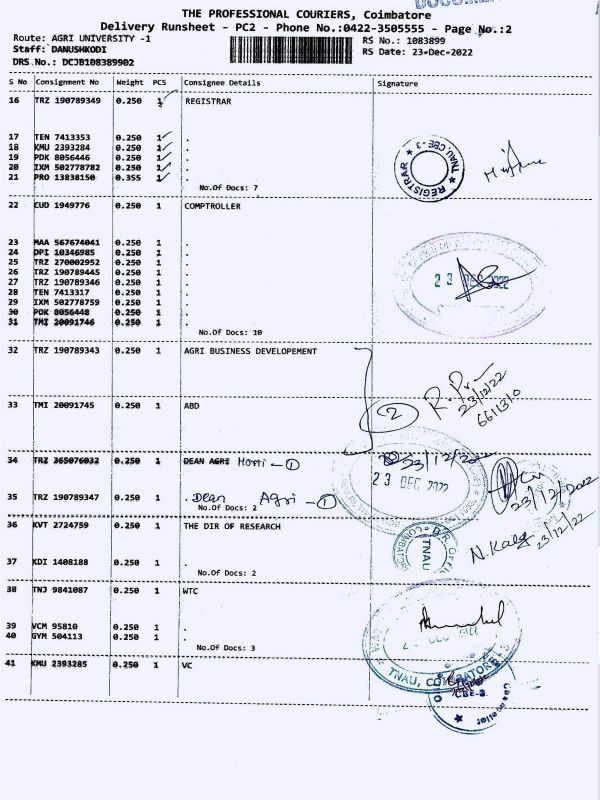 THE PROFESSIONAL COURIERS, Coimbatore
Delivery Runsheet - PC2 - Phone No.:0422-3505555 - Page No.:2
Route: AGRI UNIVERSITY -1
RS No.: 1083899
Staff: DANUSHKODI
RS Date: 23-Dec-2022
DRS No.: DCJB108389902
S No Consignment No Weight PCS Consignee Details Signature
16 TRZ 190789349 0.250 1 REGISTRAR
17 TEN 7413353 0.250 1 .
18 KMU 2393284 0.250 1 .
19 PDK 8056446 0.250 1 .
20 IXM 502778782 0.250 1 .
21 PRO 13838150 0.355 1 .
No.Of Docs: 7
REGISTRAR ★ TNAU, CBE-3 ★
22 CUD 1949776 0.250 1 COMPTROLLER
23 MAA 567674041 0.250 1 .
24 DPI 10346985 0.250 1 .
25 TRZ 270002952 0.250 1 .
26 TRZ 190789445 0.250 1 .
27 TRZ 190789346 0.250 1 .
28 TEN 7413317 0.250 1 .
29 IXM 502778759 0.250 1 .
30 PDK 8056448 0.250 1 .
31 TMI 20091746 0.250 1 .
No.Of Docs: 10
23 DEC 2022
32 TRZ 190789343 0.250 1 AGRI BUSINESS DEVELOPEMENT
33 TMI 20091745 0.250 1 ABD
2
23/12/22
6611310
34 TRZ 365076032 0.250 1 DEAN AGRI Horti - 1
23/12/2022
23 DEC 2022
35 TRZ 190789347 0.250 1 . Dean Agri - 1
No.Of Docs: 2
23/12/2022
36 KVT 2724759 0.250 1 THE DIR OF RESEARCH
TNAU
23/12/22
37 KDI 1408188 0.250 1 .
No.Of Docs: 2
38 TNJ 9841087 0.250 1 WTC
39 VCM 95810 0.250 1 .
40 GYM 504113 0.250 1 .
No.Of Docs: 3
TNAU, COIMBATORE
41 KMU 2393285 0.250 1 VC
CBE-3